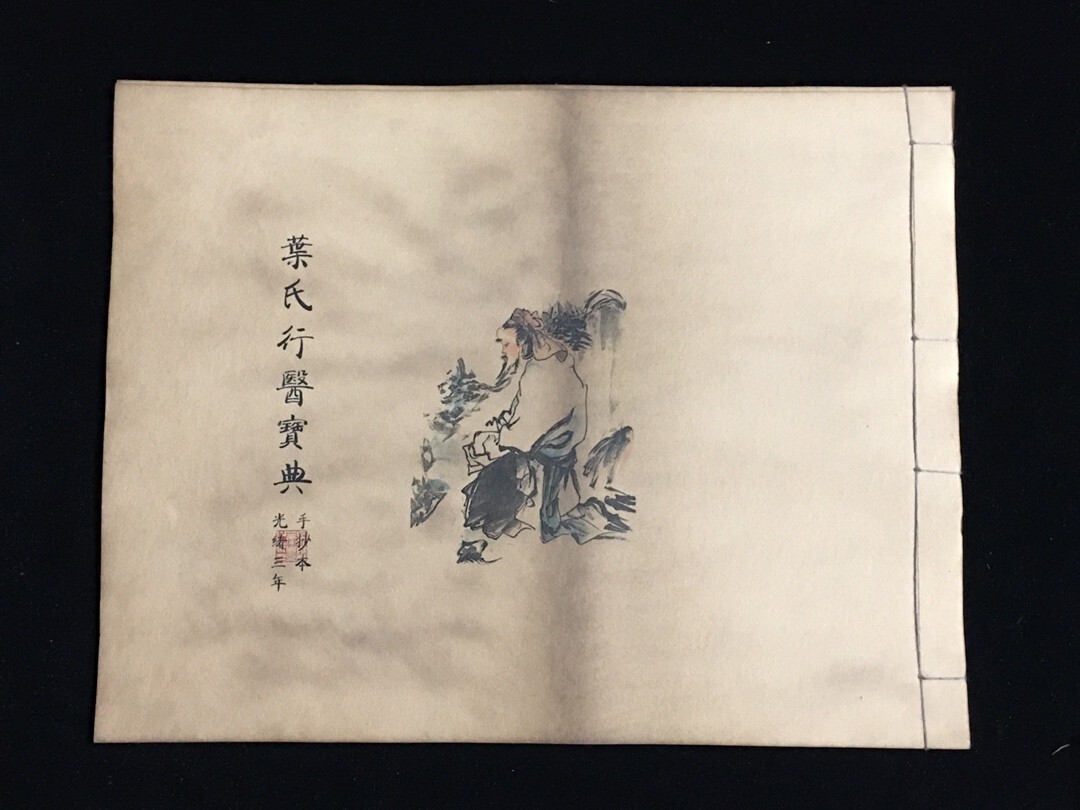 葉氏行醫寶典
手抄本
光緒三年